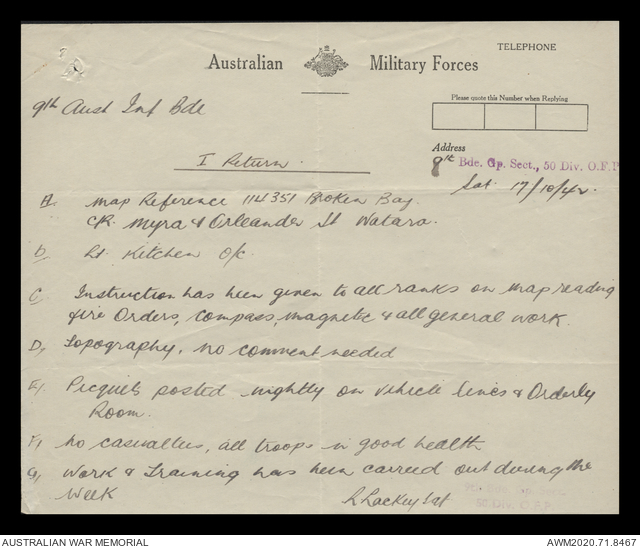 TELEPHONE
Australian Military Forces
Please quote this Number when Replying
9th Aust Inf Bde
Address
9th Bde. Gp. Sect., 50 Div. O.F.P
I Return.
Sat. 17/10/42.
A. Map Reference 114351 Broken Bay.
CR. Myra & Orleander St Watara.
B. Lt Kitchen O/C.
C, Instruction has been given to all ranks on map reading
fire Orders, compass, magnetic & all general work.
D, Topography, no comment needed
E, Picquets posted nightly on vehicle lines & Orderly
Room.
F, No casualties, all troops in good health
G, Work & Training has been carried out during the
Week
L Lackey Sgt
50 Div. O.F.P.
AUSTRALIAN WAR MEMORIAL
AWM2020.71.8467